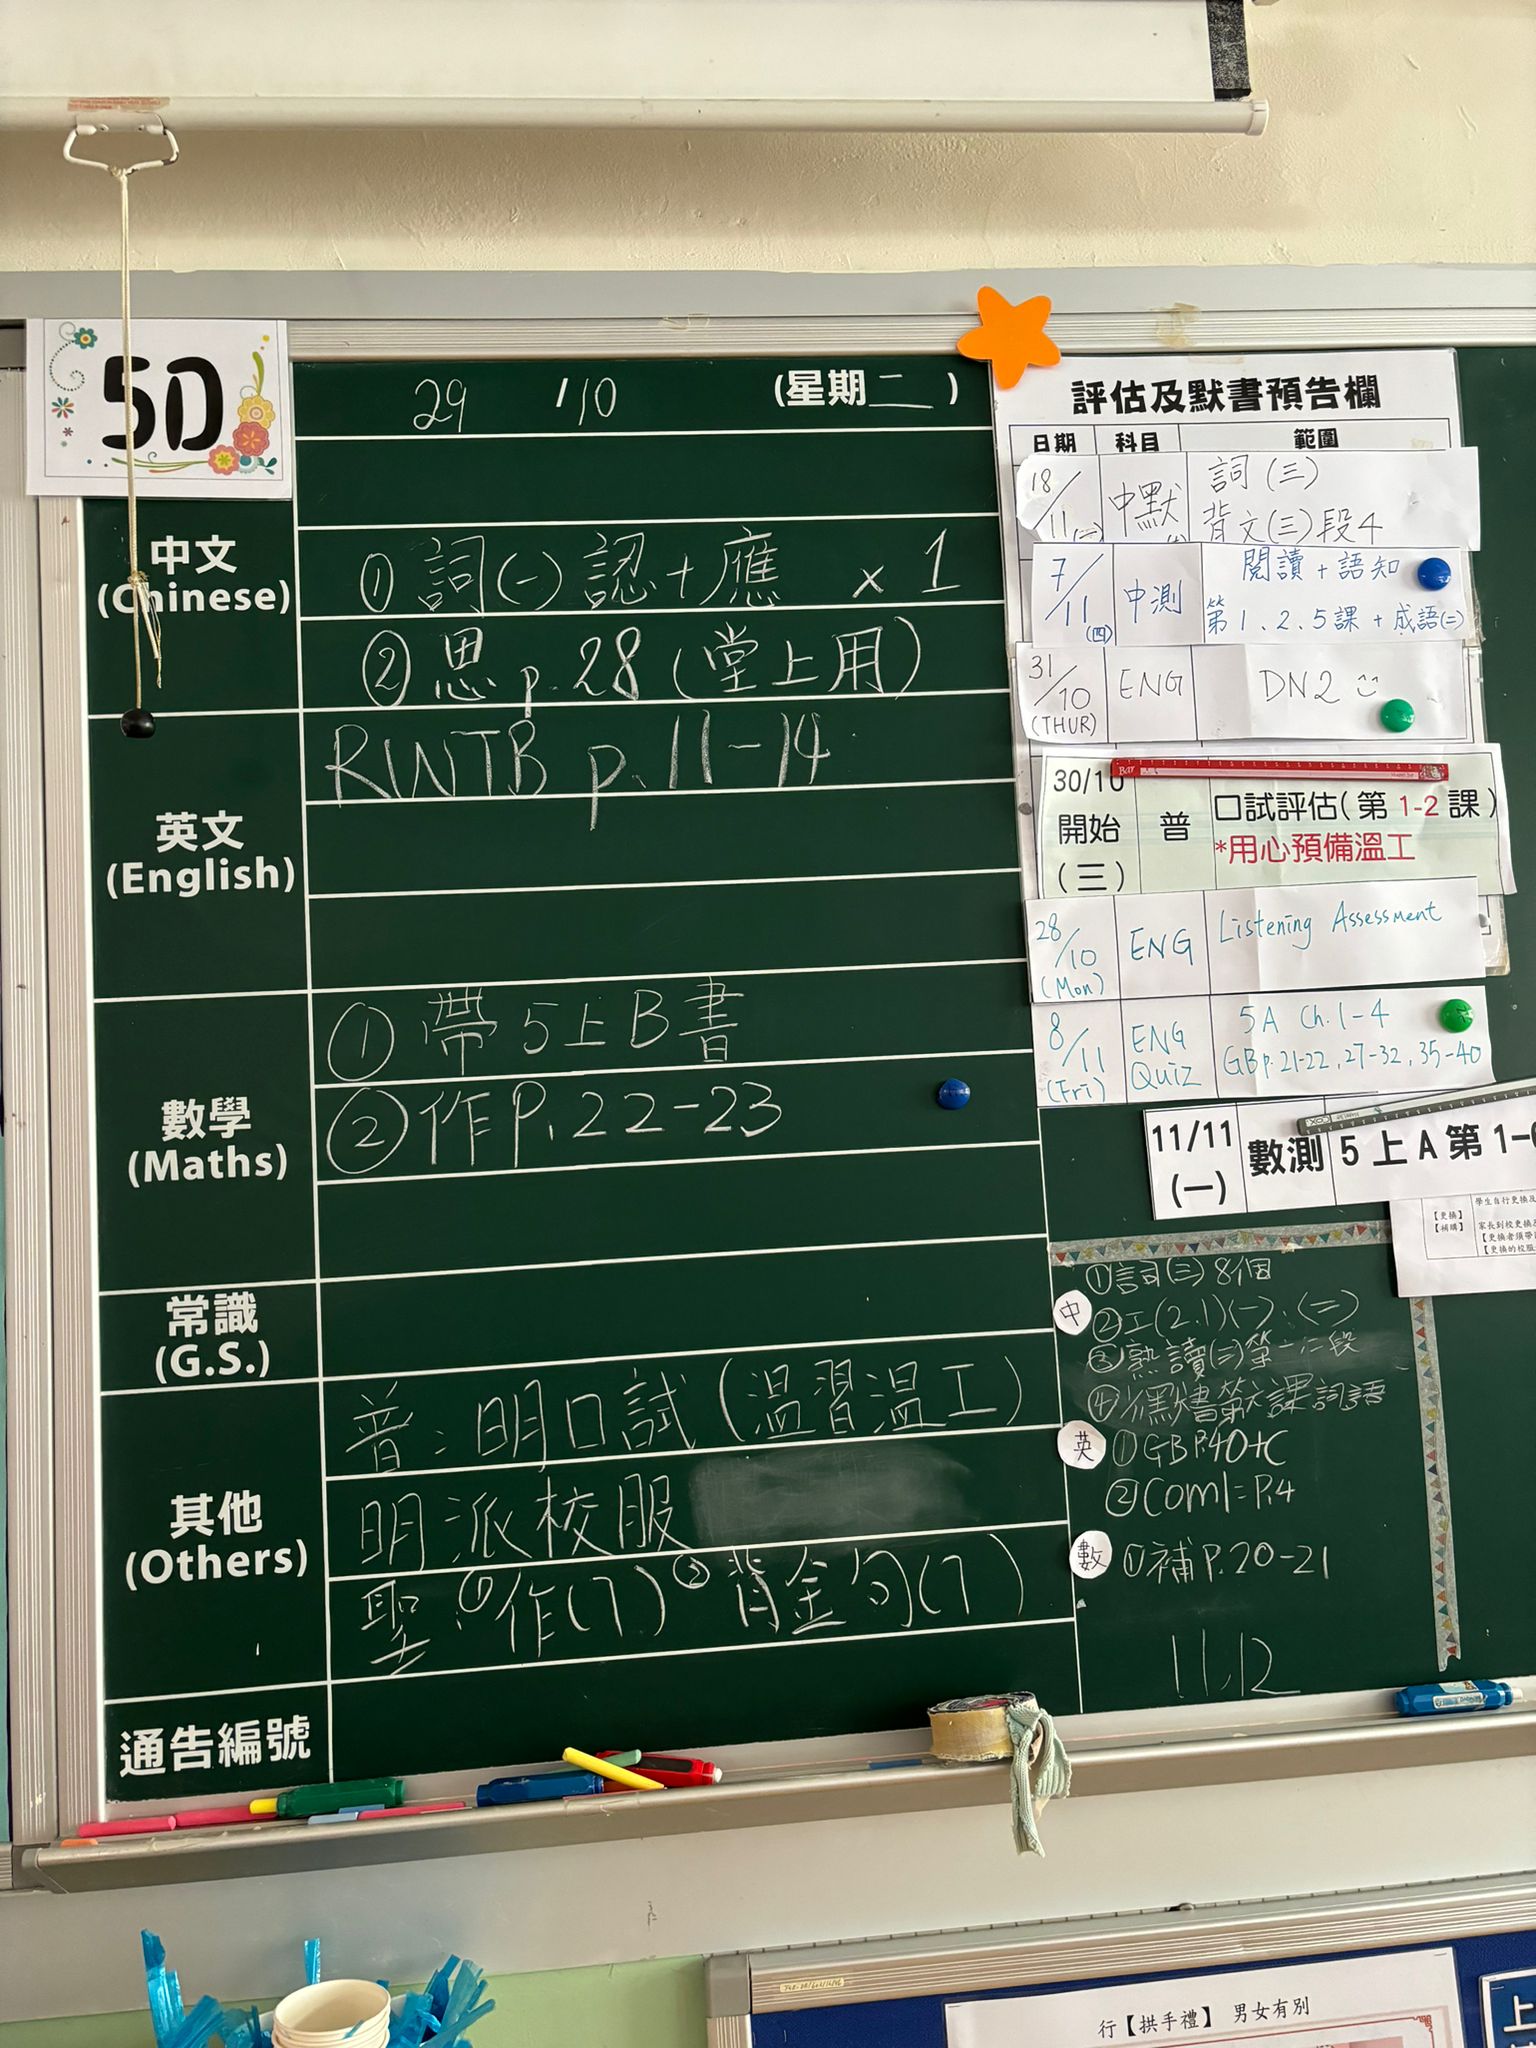 5D
29 / 10 (星期二)
中文
(Chinese)
① 詞(一) 認+應 x 1
② 思 p.28 (堂上用)
英文
(English)
RWTB p.11-14
數學
(Maths)
① 帶5上B書
② 作P.22-23
常識
(G.S.)
其他
(Others)
普：明口試(溫習溫工)
明派校服
聖：①作(7) ②背金句(7)
通告編號
評估及默書預告欄
日期 科目 範圍
18/11 中默 詞(三)
背文(三)段4
7/11 (四) 中測 閱讀+語知
第1、2、5課+成語(二)
31/10 (THUR) ENG DN2
30/10 開始 (三) 普 口試評估(第1-2課)
*用心預備溫工
28/10 (Mon) ENG Listening Assessment
8/11 (Fri) ENG QUIZ 5A Ch.1-4
GB p.21-22, 27-32, 35-40
11/11 (一) 數測 5上A第1-
學生自行更換及
【更換】
【補購】 家長到校更換及
【更換者須帶
【更換的校服
中
①詞(三)8個
②工(2.1)(一)、(二)
③熟讀(三)第一、二段
詞語
英
①GB P.40+C
P.4
數
①補P.20-21
11,12
行【拱手禮】 男女有別
上